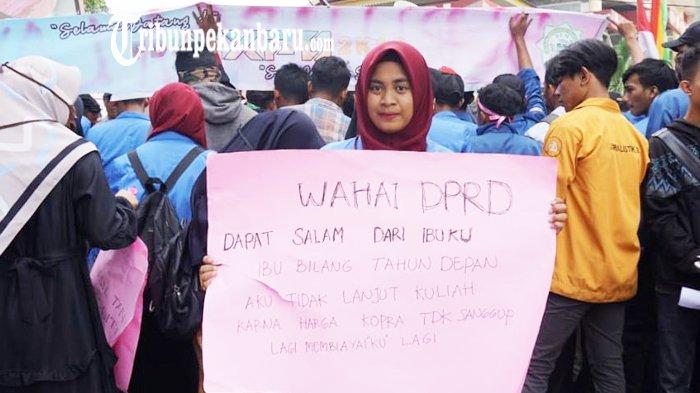 "Selamat Datang
Tribunpekanbaru.com
WAHAI DPRD
DAPAT SALAM DARI IBUKU
IBU BILANG TAHUN DEPAN
AKU TIDAK LANJUT KULIAH
KARNA HARGA KOPRA TDK SANGGUP
LAGI MEMBIAYAI"KU" LAGI